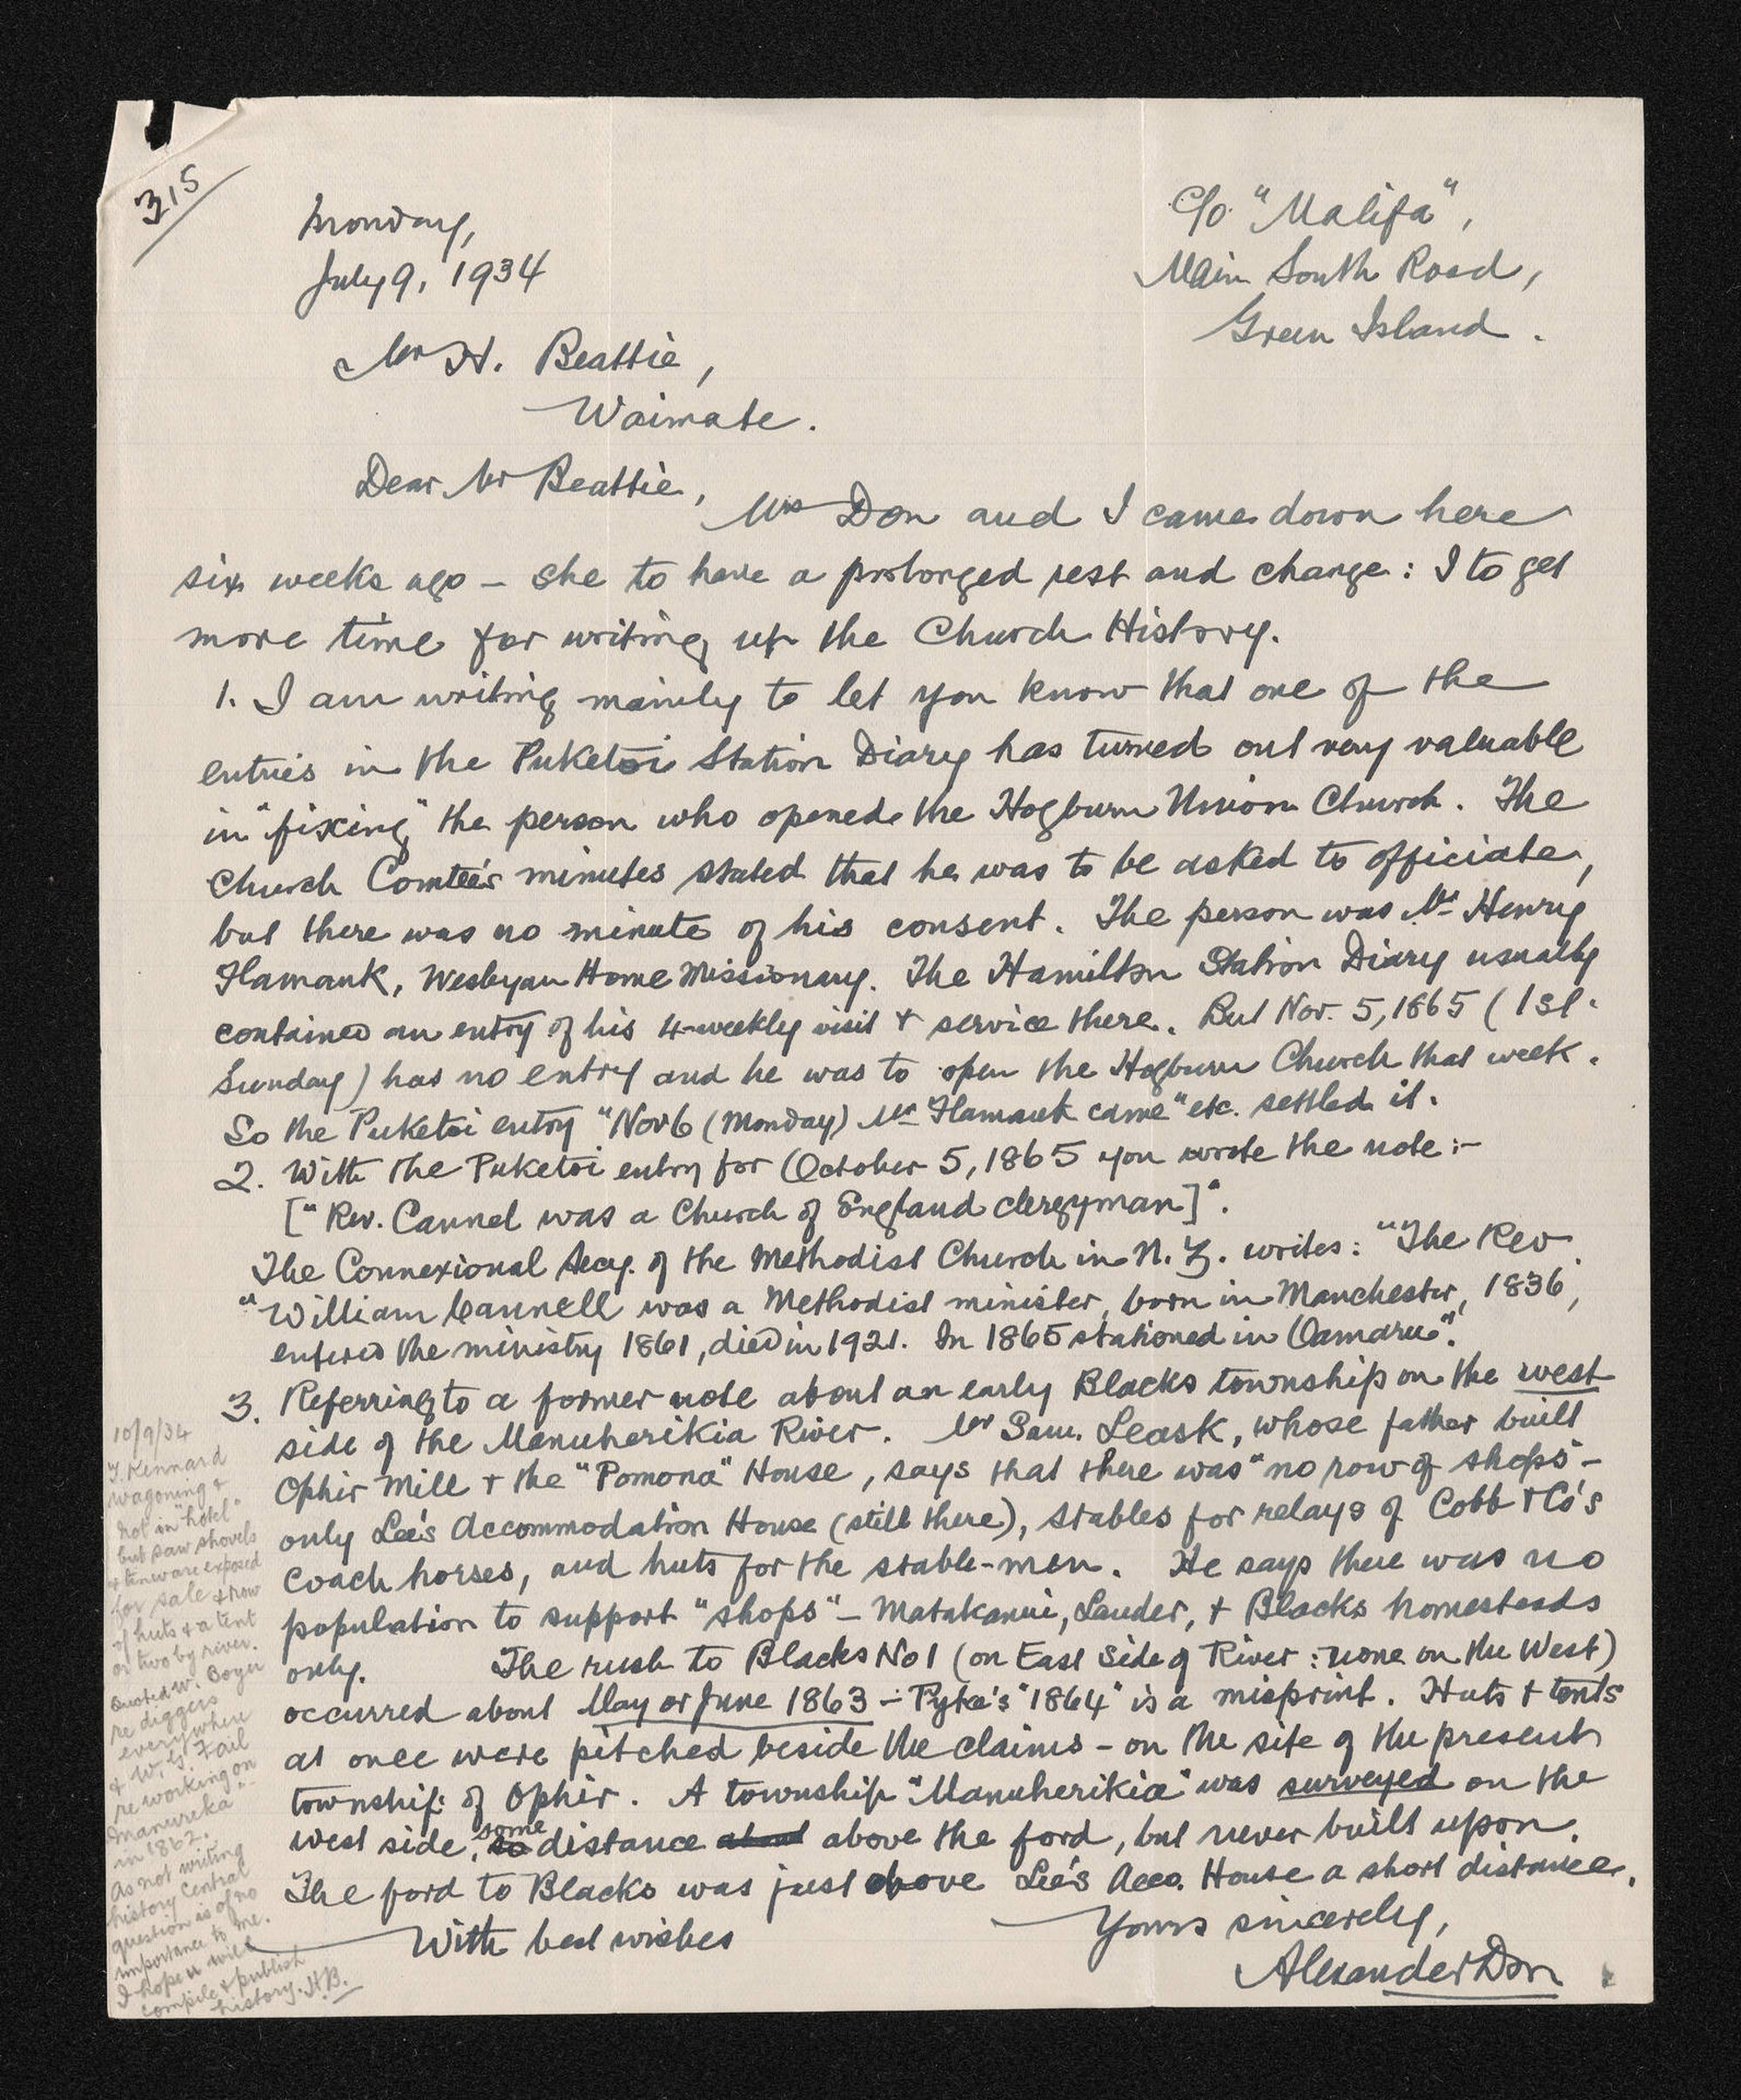 315
Monday,
July 9, 1934
C/o "Malifa",
Main South Road,
Green Island.
Mr H. Beattie,
Waimate.
Dear Mr Beattie,
Mrs Don and I came down here
six weeks ago – she to have a prolonged rest and change: I to get
more time for writing up the Church History.
1. I am writing mainly to let you know that one of the
entries in the Puketoi Station Diary has turned out very valuable
in "fixing" the person who opened the Hogburn Union Church. The
Church Comtee's minutes stated that he was to be asked to officiate,
but there was no minute of his consent. The person was Mr Henry
Flamank, Wesleyan Home Missionary. The Hamilton Station Diary usually
contained an entry of his 4-weekly visit & service there. But Nov. 5, 1865 (1st.
Sunday) has no entry and he was to open the Hogburn Church that week.
So the Puketoi entry "Nov 6 (Monday) Mr Flamank came" etc. settled it.
2. With the Puketoi entry for October 5, 1865 you wrote the note:-
["Rev. Cannel was a Church of England clergyman]".
The Connexional Secy. of the Methodist Church in N.Z. writes: "The Rev.
"William Cannell was a Methodist minister, born in Manchester, 1836,
entered the ministry 1861, died in 1921. In 1865 stationed in Oamaru".
3. Referring to a former note about an early Blacks township on the west
side of the Manuherikia River. Mr Sam. Leask, whose father built
Ophir Mill & the "Pomona" House, says that there was "no row of shops" –
only Lee's Accommodation House (still there), stables for relays of Cobb & Co's
coach horses, and huts for the stable-men. He says there was no
population to support "shops" – Matakanui, Lauder, & Blacks homesteads
only. The rush to Blacks No 1 (on East Side of River: none on the West)
occurred about May or June 1863 – Pyke's "1864" is a misprint. Huts & tents
at once were pitched beside the claims – on the site of the present
township of Ophir. A township "Manuherikia" was surveyed on the
west side, some distance about above the ford, but never built upon.
The ford to Blacks was just above Lee's Acco. House a short distance.
With best wishes
Yours sincerely,
Alexander Don
10/9/34
T. Kennard
wagoning &
not in "hotel"
but saw shovels
& tinware exposed
for sale & row
of huts & a tent
or two by river.
Quoted W. Boyer
re diggers
everywhere
& W. G. Fail
re working on
"Manureka"
in 1862.
As not writing
history Central
question is of no
importance to me.
I hope u will
compile & publish
history. H.B.